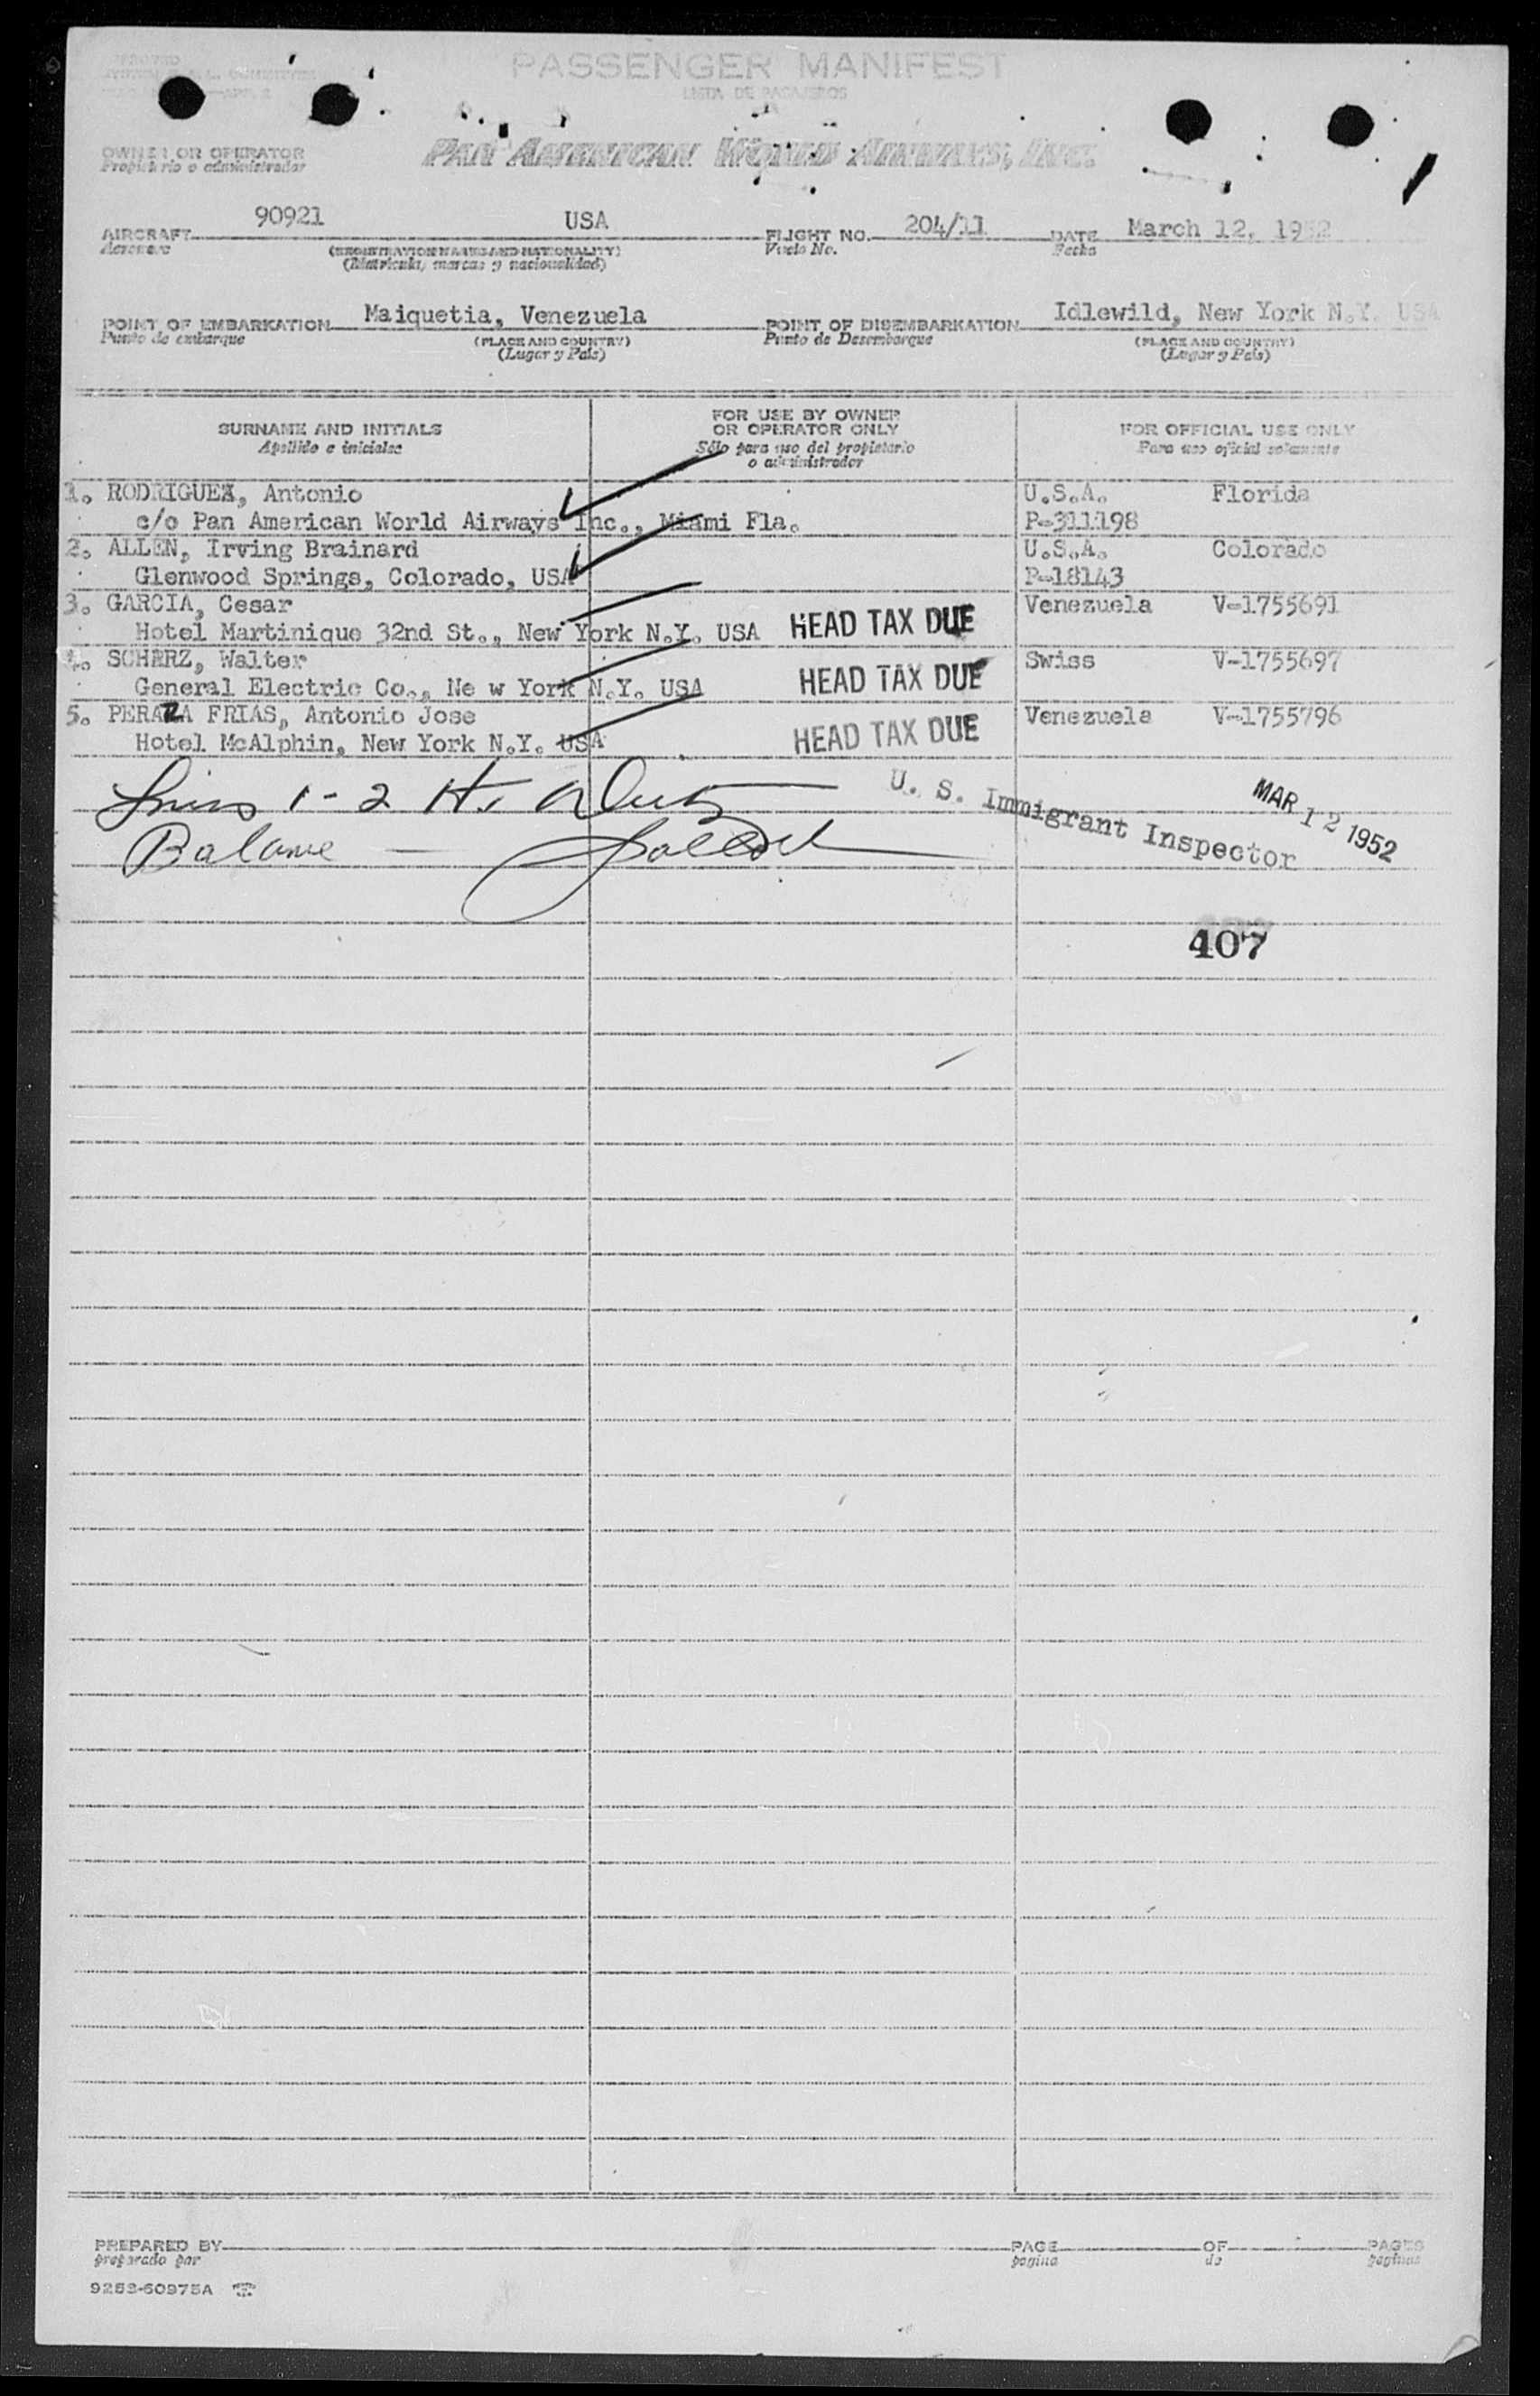 PASSENGER MANIFEST
LISTA DE PASAJEROS
OWNER OR OPERATOR PAN AMERICAN WORLD AIRWAYS, INC.
Propietario o administrador
AIRCRAFT 90921 USA FLIGHT NO. 204/11 DATE March 12, 1952
Aeronave (REGISTRATION MARKS AND NATIONALITY) Vuelo No. Fecha
(Matricula, marcas y nacionalidad)
POINT OF EMBARKATION Maiquetia, Venezuela POINT OF DISEMBARKATION Idlewild, New York N.Y. USA
Punto de embarque (PLACE AND COUNTRY) Punto de Desembarque (PLACE AND COUNTRY)
(Lugar y País) (Lugar y País)
SURNAME AND INITIALS FOR USE BY OWNER OR OPERATOR ONLY FOR OFFICIAL USE ONLY
Apellido e iniciales Sólo para uso del propietario o administrador Para uso oficial solamente
1. RODRIGUEZ, Antonio U.S.A. Florida
c/o Pan American World Airways Inc., Miami Fla. P-311198
2. ALLEN, Irving Brainard U.S.A. Colorado
Glenwood Springs, Colorado, USA P-18143
3. GARCIA, Cesar Venezuela V-1755691
Hotel Martinique 32nd St., New York N.Y. USA HEAD TAX DUE
4. SCHERZ, Walter Swiss V-1755697
General Electric Co., Ne w York N.Y. USA HEAD TAX DUE
5. PERAZA FRIAS, Antonio Jose Venezuela V-1755796
Hotel McAlphin, New York N.Y. USA HEAD TAX DUE
1-2 U. S. Immigrant Inspector MAR 12 1952
Balance —
407
PREPARED BY PAGE OF PAGES
preparado por pagina de paginas
9252-60975A